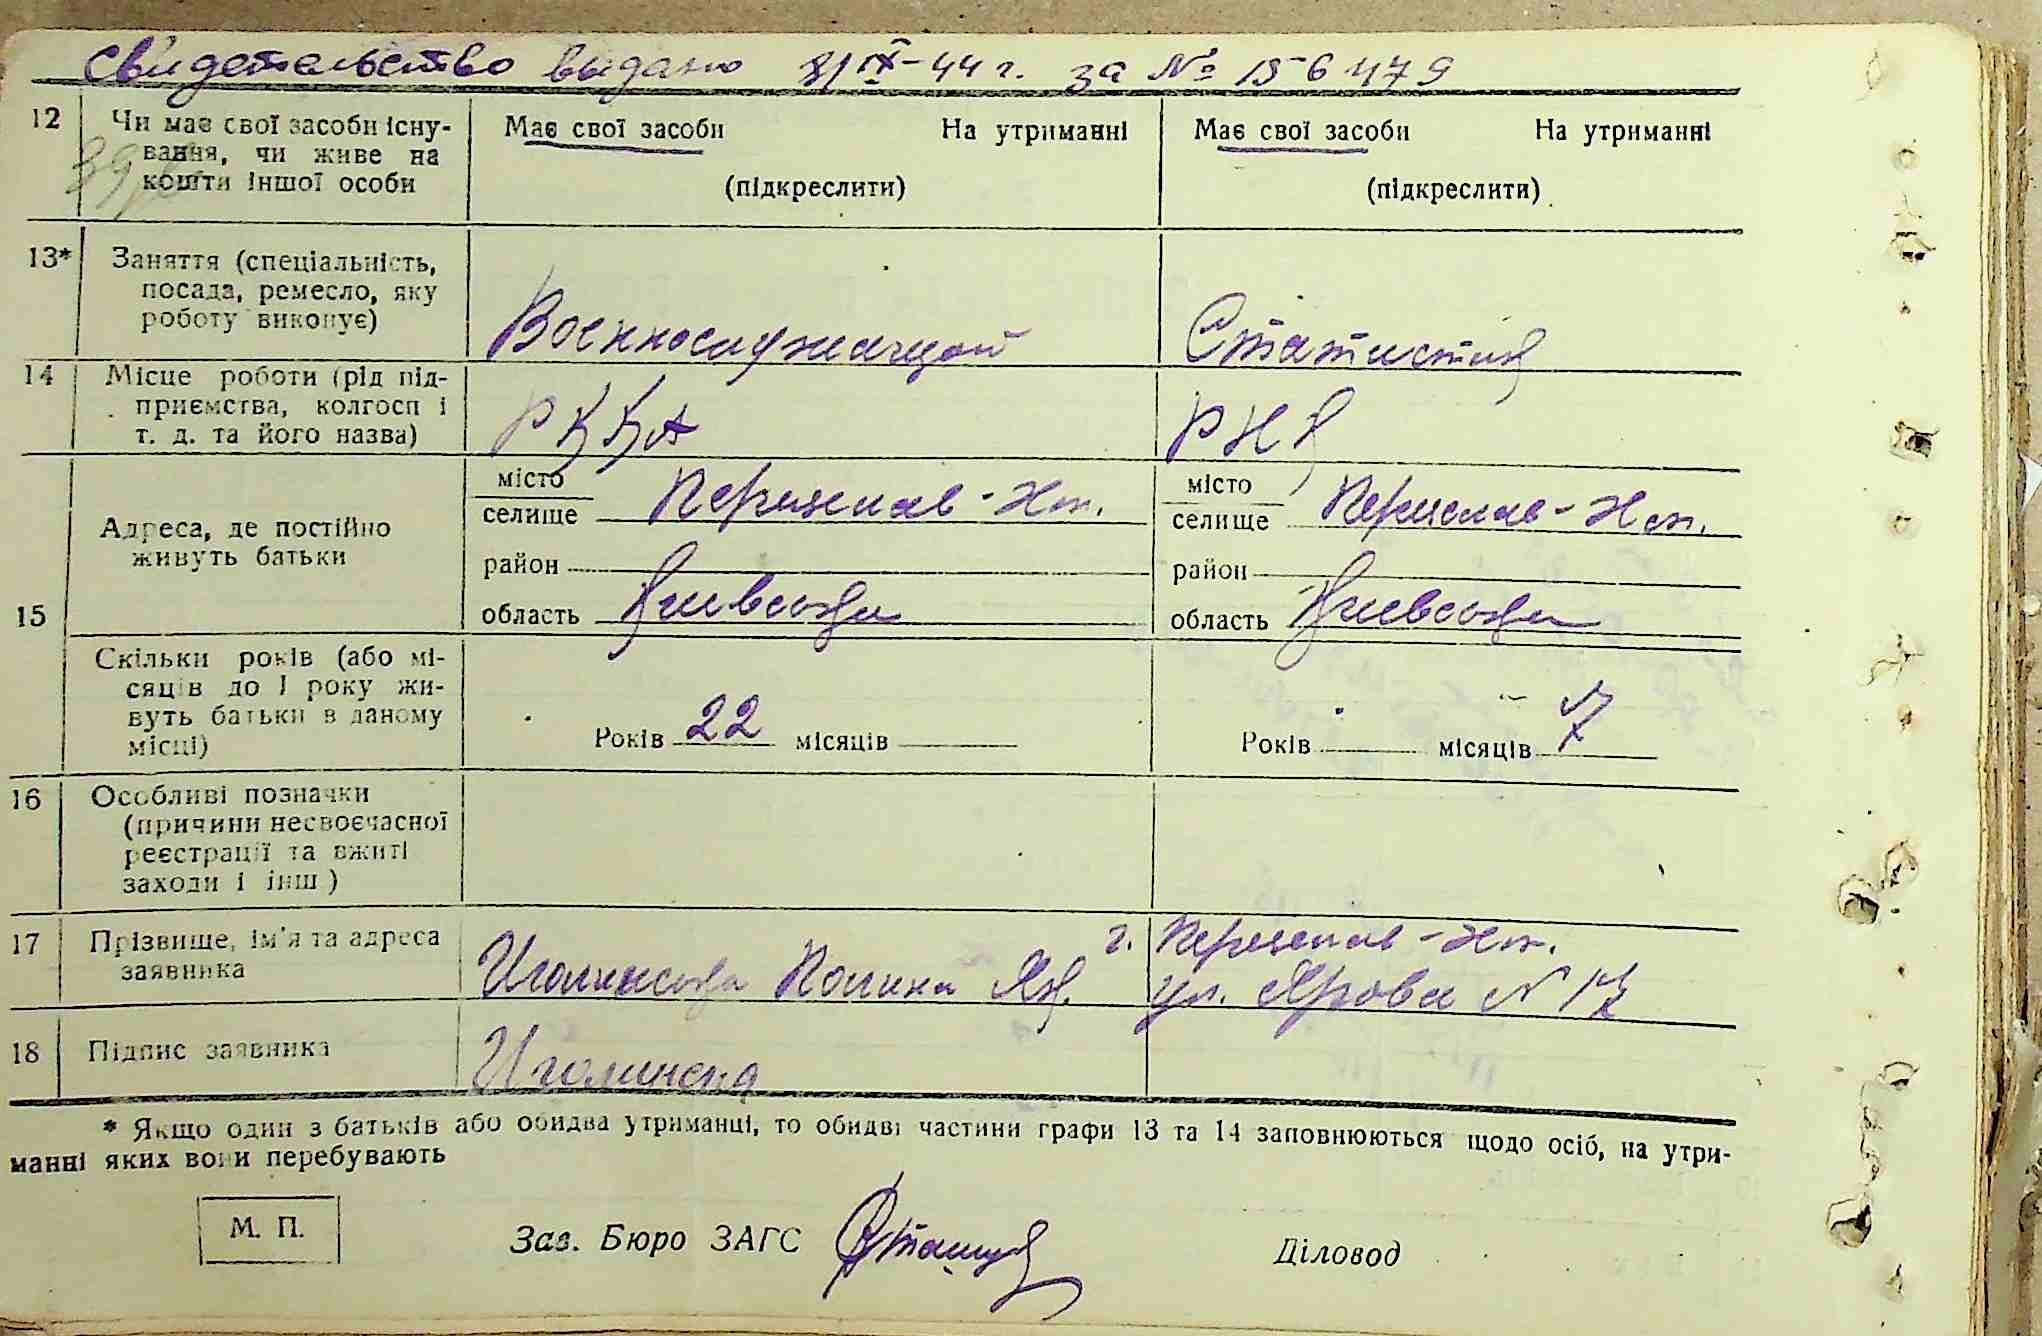 Свидетельство выдано 8/IX-44 г. за № 156479
12 Чи має свої засоби існу-
вання, чи живе на
кошти іншої особи
Має свої засоби На утриманні
(підкреслити)
Має свої засоби На утриманні
(підкреслити)
13* Заняття (спеціальність,
посада, ремесло, яку
роботу виконує)
Военнослужащий
Статистик
14 Місце роботи (рід під-
приємства, колгосп і
т. д. та його назва)
РККА
РНК
15
Адреса, де постійно
живуть батьки
місто
селище Переяслав-Хм.
район
область Киевская
місто
селище Переяслав-Хм.
район
область Киевская
Скільки років (або мі-
сяців до 1 року жи-
вуть батьки в даному
місці)
Років 22 місяців
Років місяців 7
16 Особливі позначки
(причини несвоєчасної
реєстрації та вжиті
заходи і інш)
17 Прізвище, ім'я та адреса
заявника
Иголинская Полина Як.
г. Переяслав-Хм.
ул. Ярова N 17
18 Підпис заявника
Иголинска
* Якщо один з батьків або обидва утриманці, то обидві частини графи 13 та 14 заповнюються щодо осіб, на утри-
манні яких вони перебувають
М. П.
Зав. Бюро ЗАГС
Діловод